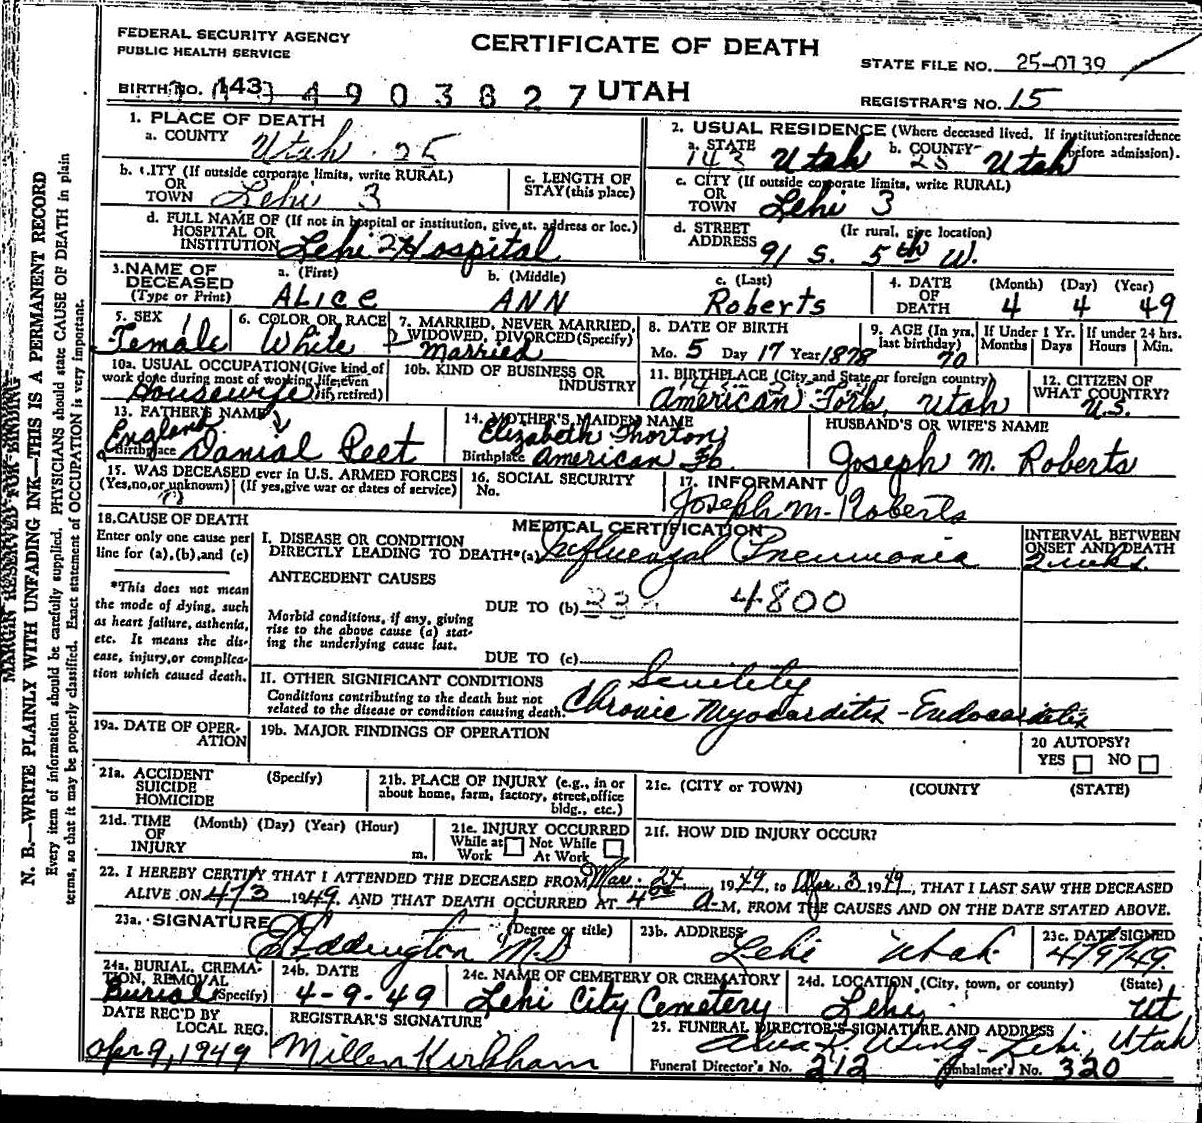 FEDERAL SECURITY AGENCY
PUBLIC HEALTH SERVICE
CERTIFICATE OF DEATH
STATE FILE NO. 25-0139
BIRTH NO. 143 4903827 UTAH
REGISTRAR'S NO. 15
1. PLACE OF DEATH
a. COUNTY Utah . 25
2. USUAL RESIDENCE (Where deceased lived. If institution:residence before admission).
a. STATE 143 Utah b. COUNTY 25 Utah
b. CITY (If outside corporate limits, write RURAL)
OR
TOWN Lehi 3
c. LENGTH OF
STAY (this place)
c. CITY (If outside corporate limits, write RURAL)
OR
TOWN Lehi 3
d. FULL NAME OF (If not in hospital or institution, give st. address or loc.)
HOSPITAL OR
INSTITUTION Lehi Hospital
d. STREET (Ir rural, give location)
ADDRESS 91 S. 5th W.
3. NAME OF
DECEASED
(Type or Print)
a. (First) ALICE
b. (Middle) ANN
c. (Last) Roberts
4. DATE
OF
DEATH
(Month) (Day) (Year)
4 4 49
5. SEX 1
Female
6. COLOR OR RACE
White
7. MARRIED, NEVER MARRIED,
WIDOWED, DIVORCED (Specify)
Married
8. DATE OF BIRTH
Mo. 5 Day 17 Year 1878
9. AGE (In yrs.
last birthday) 70
If Under 1 Yr.
Months Days
If under 24 hrs.
Hours Min.
10a. USUAL OCCUPATION (Give kind of
work done during most of working life, even
if retired)
Housewife
10b. KIND OF BUSINESS OR
INDUSTRY
11. BIRTHPLACE (City and State or foreign country)
American Fork, Utah
12. CITIZEN OF
WHAT COUNTRY?
U.S.
13. FATHER'S NAME
England
Birthplace Danial Peet
14. MOTHER'S MAIDEN NAME
Elizabeth Thorton
Birthplace American Fk
HUSBAND'S OR WIFE'S NAME
Joseph M. Roberts
15. WAS DECEASED ever in U.S. ARMED FORCES
(Yes, no, or unknown) (If yes, give war or dates of service)
16. SOCIAL SECURITY
No.
17. INFORMANT
Joseph M. Roberts
18. CAUSE OF DEATH
Enter only one cause per
line for (a), (b), and (c)
*This does not mean
the mode of dying, such
as heart failure, asthenia,
etc. It means the dis-
ease, injury, or complica-
tion which caused death.
MEDICAL CERTIFICATION
I. DISEASE OR CONDITION
DIRECTLY LEADING TO DEATH*(a) Influenzal Pneumonia
INTERVAL BETWEEN
ONSET AND DEATH
2 wks.
ANTECEDENT CAUSES
Morbid conditions, if any, giving
rise to the above cause (a) stat-
ing the underlying cause last.
DUE TO (b) 4800
DUE TO (c)
II. OTHER SIGNIFICANT CONDITIONS
Conditions contributing to the death but not
related to the disease or condition causing death.
Senility
Chronic Myocarditis - Endocarditis
19a. DATE OF OPER-
ATION
19b. MAJOR FINDINGS OF OPERATION
20 AUTOPSY?
YES NO
21a. ACCIDENT
SUICIDE
HOMICIDE
(Specify)
21b. PLACE OF INJURY (e.g., in or
about home, farm, factory, street, office
bldg., etc.)
21c. (CITY OR TOWN) (COUNTY (STATE)
21d. TIME (Month) (Day) (Year) (Hour)
OF
INJURY m.
21e. INJURY OCCURRED
While at Work Not While At Work
21f. HOW DID INJURY OCCUR?
22. I HEREBY CERTIFY THAT I ATTENDED THE DECEASED FROM Mar. 24, 1949, to Apr 3 1949, THAT I LAST SAW THE DECEASED
ALIVE ON 4/3 1949. AND THAT DEATH OCCURRED AT 4 A-M, FROM THE CAUSES AND ON THE DATE STATED ABOVE.
23a. SIGNATURE (Degree or title)
Eddington M.D
23b. ADDRESS
Lehi Utah
23c. DATE SIGNED
4/9/49
24a. BURIAL, CREMA-
TION, REMOVAL
Burial (Specify)
24b. DATE
4-9-49
24c. NAME OF CEMETERY OR CREMATORY
Lehi City Cemetery
24d. LOCATION (City, town, or county) (State)
Lehi Ut
DATE REC'D BY
LOCAL REG.
Apr 9, 1949
REGISTRAR'S SIGNATURE
Millen Kirkham
25. FUNERAL DIRECTOR'S SIGNATURE AND ADDRESS
Wing - Lehi, Utah
Funeral Director's No. 212 Embalmer's No. 320
MARGIN RESERVED FOR BINDING
N. B.—WRITE PLAINLY WITH UNFADING INK—THIS IS A PERMANENT RECORD
Every item of information should be carefully supplied. PHYSICIANS should state CAUSE OF DEATH in plain
terms, so that it may be properly classified. Exact statement of OCCUPATION is very important.